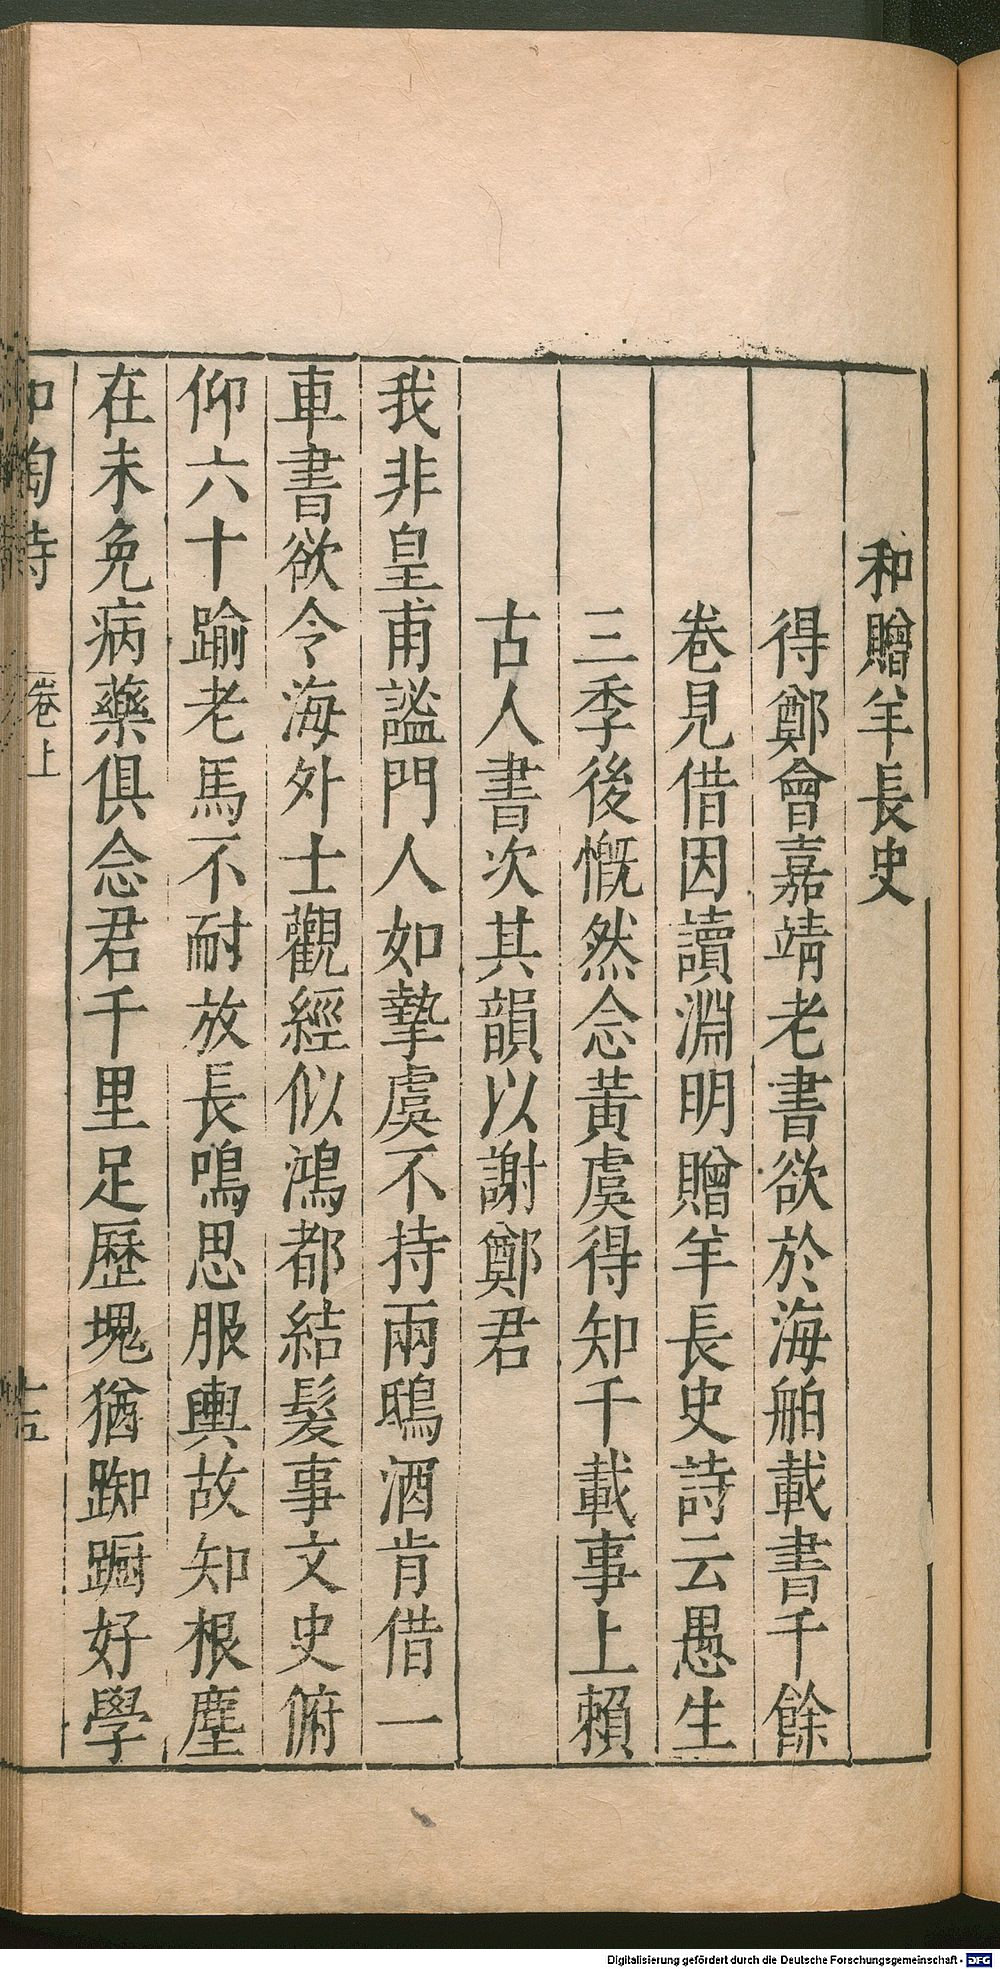 和贈羊長史
得鄭會嘉靖老書欲於海舶載書千餘
卷見借因讀淵明贈羊長史詩云愚生
三季後慨然念黃虞得知千載事上賴
古人書次其韻以謝鄭君
我非皇甫謐門人如摯虞不持兩鴟酒肯借一
車書欲令海外士觀經似鴻都結髮事文史俯
仰六十踰老馬不耐放長鳴思服輿故知根塵
在未免病藥俱念君千里足歷塊猶踟躕好學
和陶詩 卷上 十五
Digitalisierung gefördert durch die Deutsche Forschungsgemeinschaft - DFG